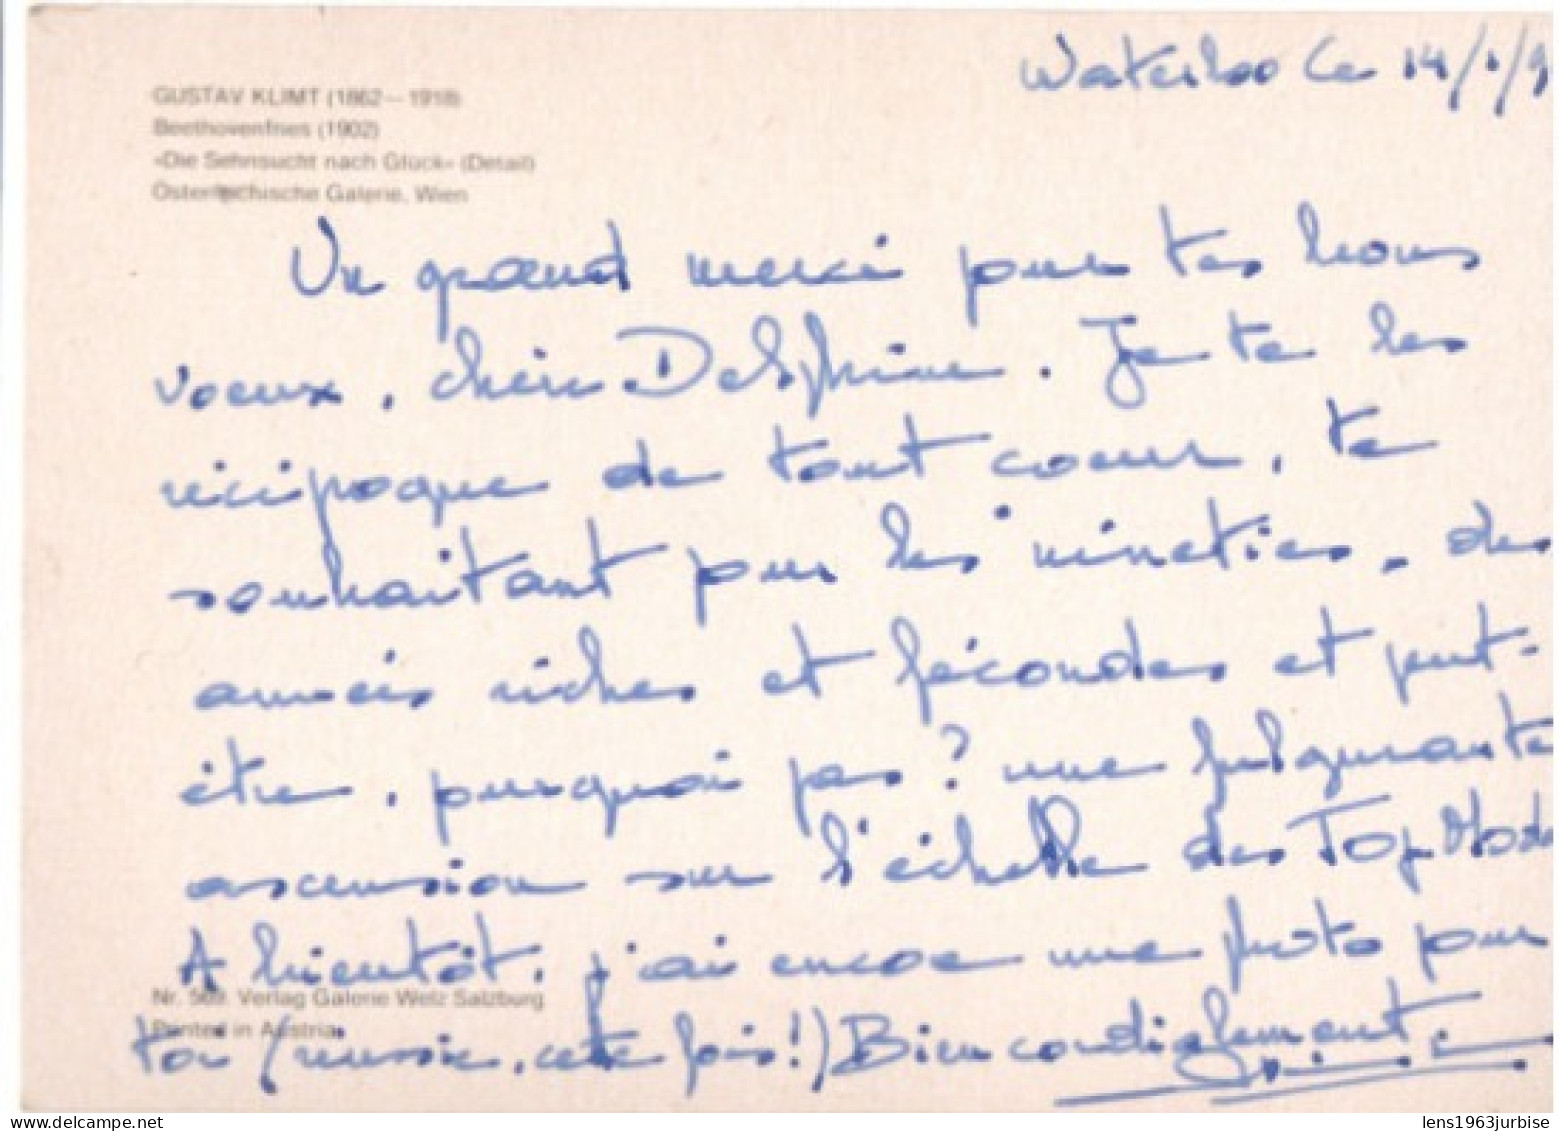 Waterloo le 14/1/9
GUSTAV KLIMT (1862—1918)
Beethovenfries (1902)
«Die Sehnsucht nach Glück» (Detail)
Österreichische Galerie, Wien
Un grand merci pour tes bons
voeux, chère Delphine. Je te les
réciproque de tout coeur, te
souhaitant pour les nineties, des
années riches et fécondes et peut-
être, pourquoi pas? une fulgurante
ascension sur l'échelle des Top Mode
A bientôt, j'ai encore une photo pour
Nr. 509 Verlag Galerie Welz Salzburg
Printed in Austria
toi (réussie, cette fois!) Bien cordialement.
lens1963jurbise
www.delcampe.net